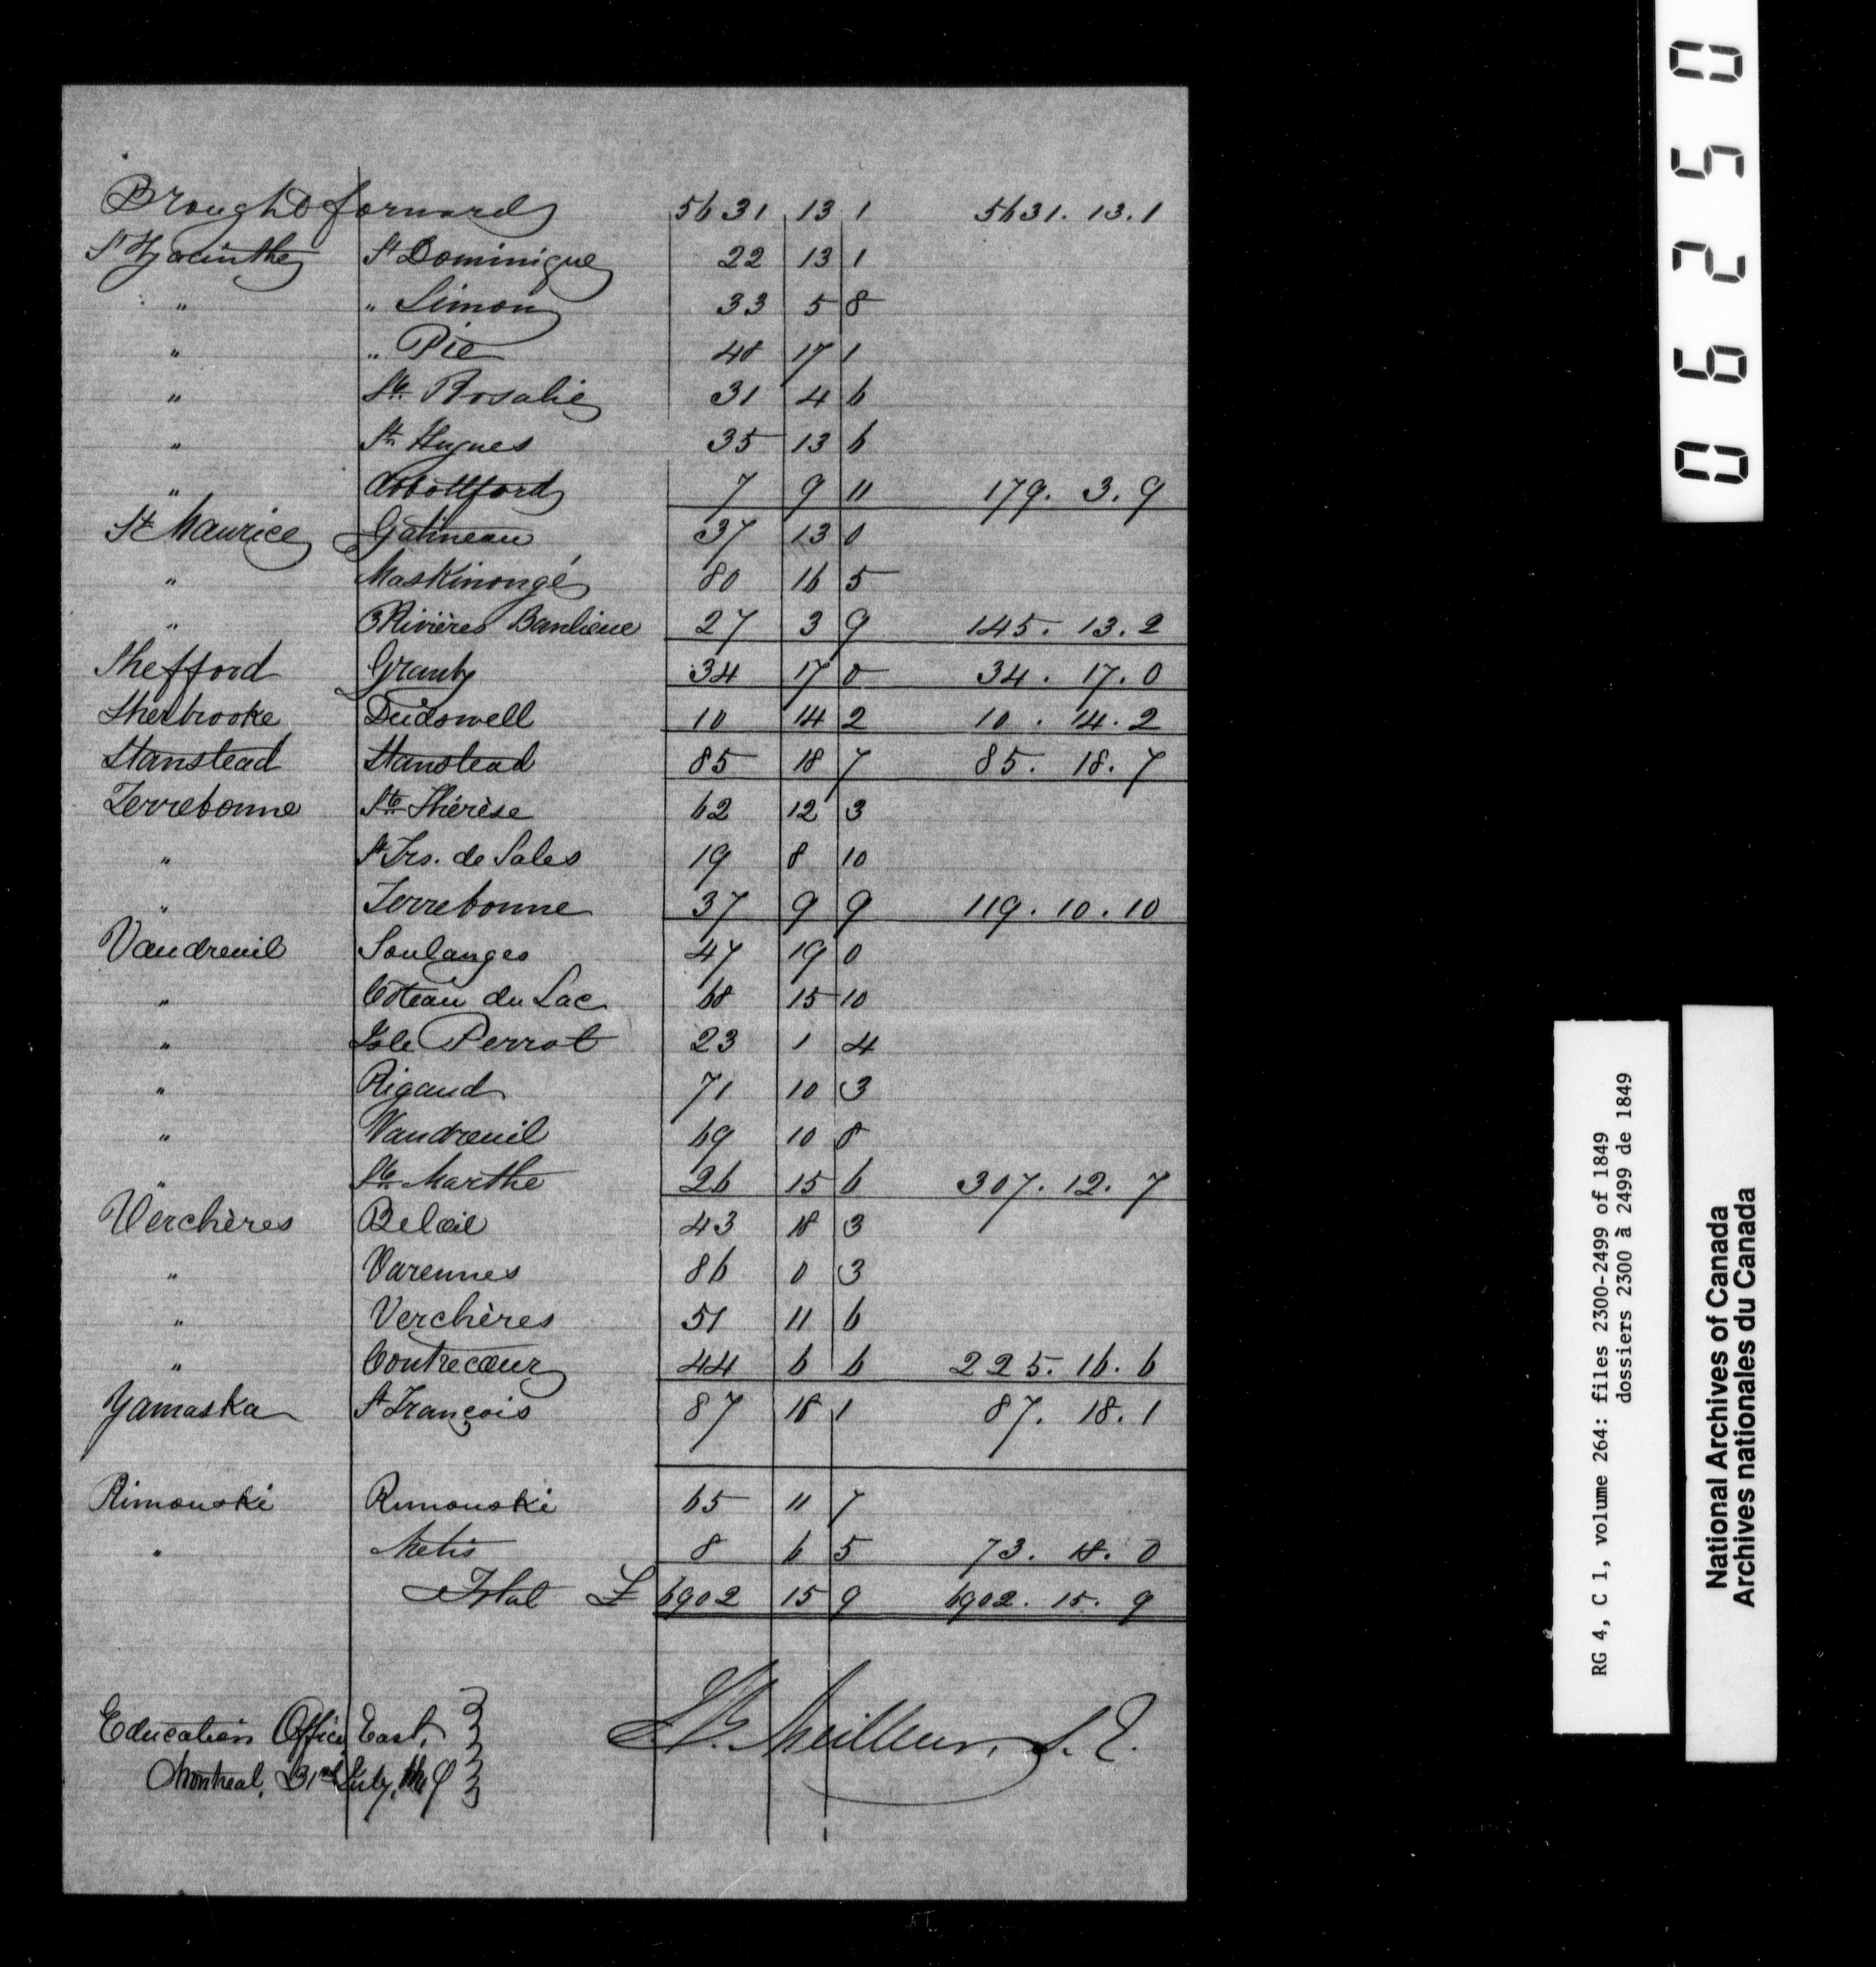 Brought forward 5631 13 1 5631. 13. 1
St Hyacinthe St Dominique 22 13 1
" " Simon 33 5 8
" " Pie 48 17 1
" Ste. Rosalie 31 4 6
" St. Hugues 35 13 6
" Abbottford 7 9 11 179. 3. 9
St Maurice Gatineau 37 13 0
" Maskinongé 80 16 5
" 3 Rivières Banlieue 27 3 9 145. 13. 2
Shefford Granby 34 17 0 34. 17. 0
Sherbrooke Dudswell 10 14 2 10. 14. 2
Stanstead Stanstead 85 18 7 85. 18. 7
Terrebonne Ste Thérèse 62 12 3
" St Frs. de Sales 19 8 10
" Terrebonne 37 9 9 119. 10. 10
Vaudreuil Soulanges 47 19 0
" Côteau du Lac 68 15 10
" Isle Perrot 23 1 4
" Rigaud 71 10 3
" Vaudreuil 69 10 8
" Ste. Marthe 26 15 6 307. 12. 7
Verchères Belœil 43 18 3
" Varennes 86 0 3
" Verchères 51 11 6
" Contrecœur 44 6 6 225. 16. 6
Yamaska St François 87 18 1 87. 18. 1
Rimouski Rimouski 65 11 7
" Metis 8 6 5 73. 18. 0
Total £ 6902 15 9 6902. 15. 9
Education Office East,
Montreal, 31st July,
J.B. Meilleur, S. E.
06250
RG 4, C 1, volume 264: files 2300-2499 of 1849
dossiers 2300 à 2499 de 1849
National Archives of Canada
Archives nationales du Canada